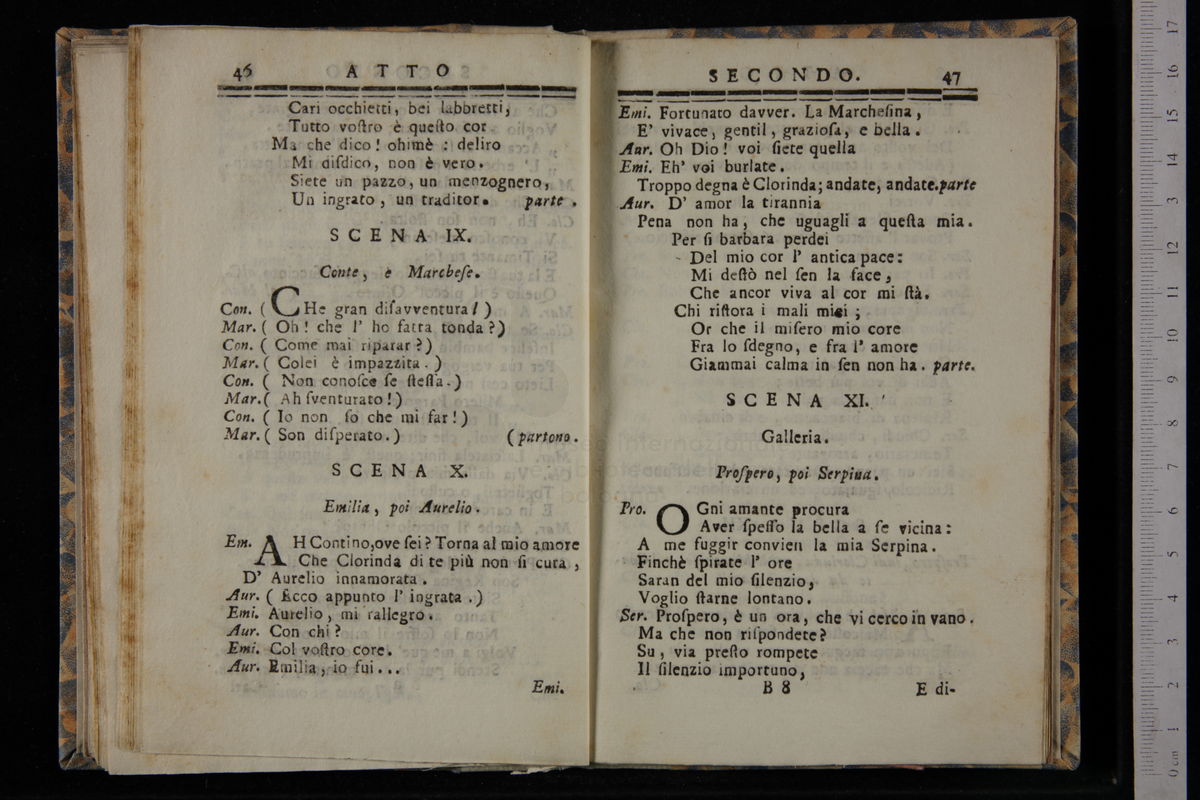 46 ATTO
Cari occhietti, bei labbretti,
Tutto voſtro è queſto cor
Ma che dico! ohimè : deliro
Mi diſdico, non è vero.
Siete un pazzo, un menzognero,
Un ingrato, un traditor. parte.
SCENA IX.
Conte, è Marcheſe.
Con. ( CHe gran diſavventura! )
Mar. ( Oh! che l' ho fatta tonda?)
Con. ( Come mai riparar?)
Mar. ( Colei è impazzita. )
Con. ( Non conoſce ſe ſteſſa.)
Mar.( Ah ſventurato!)
Con. ( Io non ſo che mi far!)
Mar. ( Son diſperato.) (partono.
SCENA X.
Emilia, poi Aurelio.
Em. AH Contino,ove ſei? Torna al mio amore
Che Clorinda di te più non ſi cura,
D' Aurelio innamorata.
Aur. ( Ecco appunto l' ingrata .)
Emi. Aurelio, mi rallegro.
Aur. Con chi?
Emi. Col voſtro core.
Aur. Emilia, io fui...
Emi.
SECONDO. 47
Emi. Fortunato davver. La Marcheſina,
E' vivace, gentil, grazioſa, e bella.
Aur. Oh Dio! voi ſiete quella
Emi. Eh' voi burlate.
Troppo degna è Clorinda; andate, andate.parte
Aur. D' amor la tirannia
Pena non ha, che uguagli a queſta mia.
Per ſi barbara perdei
Del mio cor l' antica pace:
Mi deſtò nel ſen la face,
Che ancor viva al cor mi ſtà.
Chi riſtora i mali miei;
Or che il miſero mio core
Fra lo ſdegno, e fra l' amore
Giammai calma in ſen non ha. parte.
SCENA XI.
Galleria.
Proſpero, poi Serpina.
Pro. OGni amante procura
Aver ſpeſſo la bella a ſe vicina:
A me fuggir convien la mia Serpina.
Finchè ſpirate l' ore
Saran del mio ſilenzio,
Voglio ſtarne lontano.
Ser. Proſpero, è un ora, che vi cerco in vano.
Ma che non riſpondete?
Su, via preſto rompete
Il ſilenzio importuno,
B 8 E di-